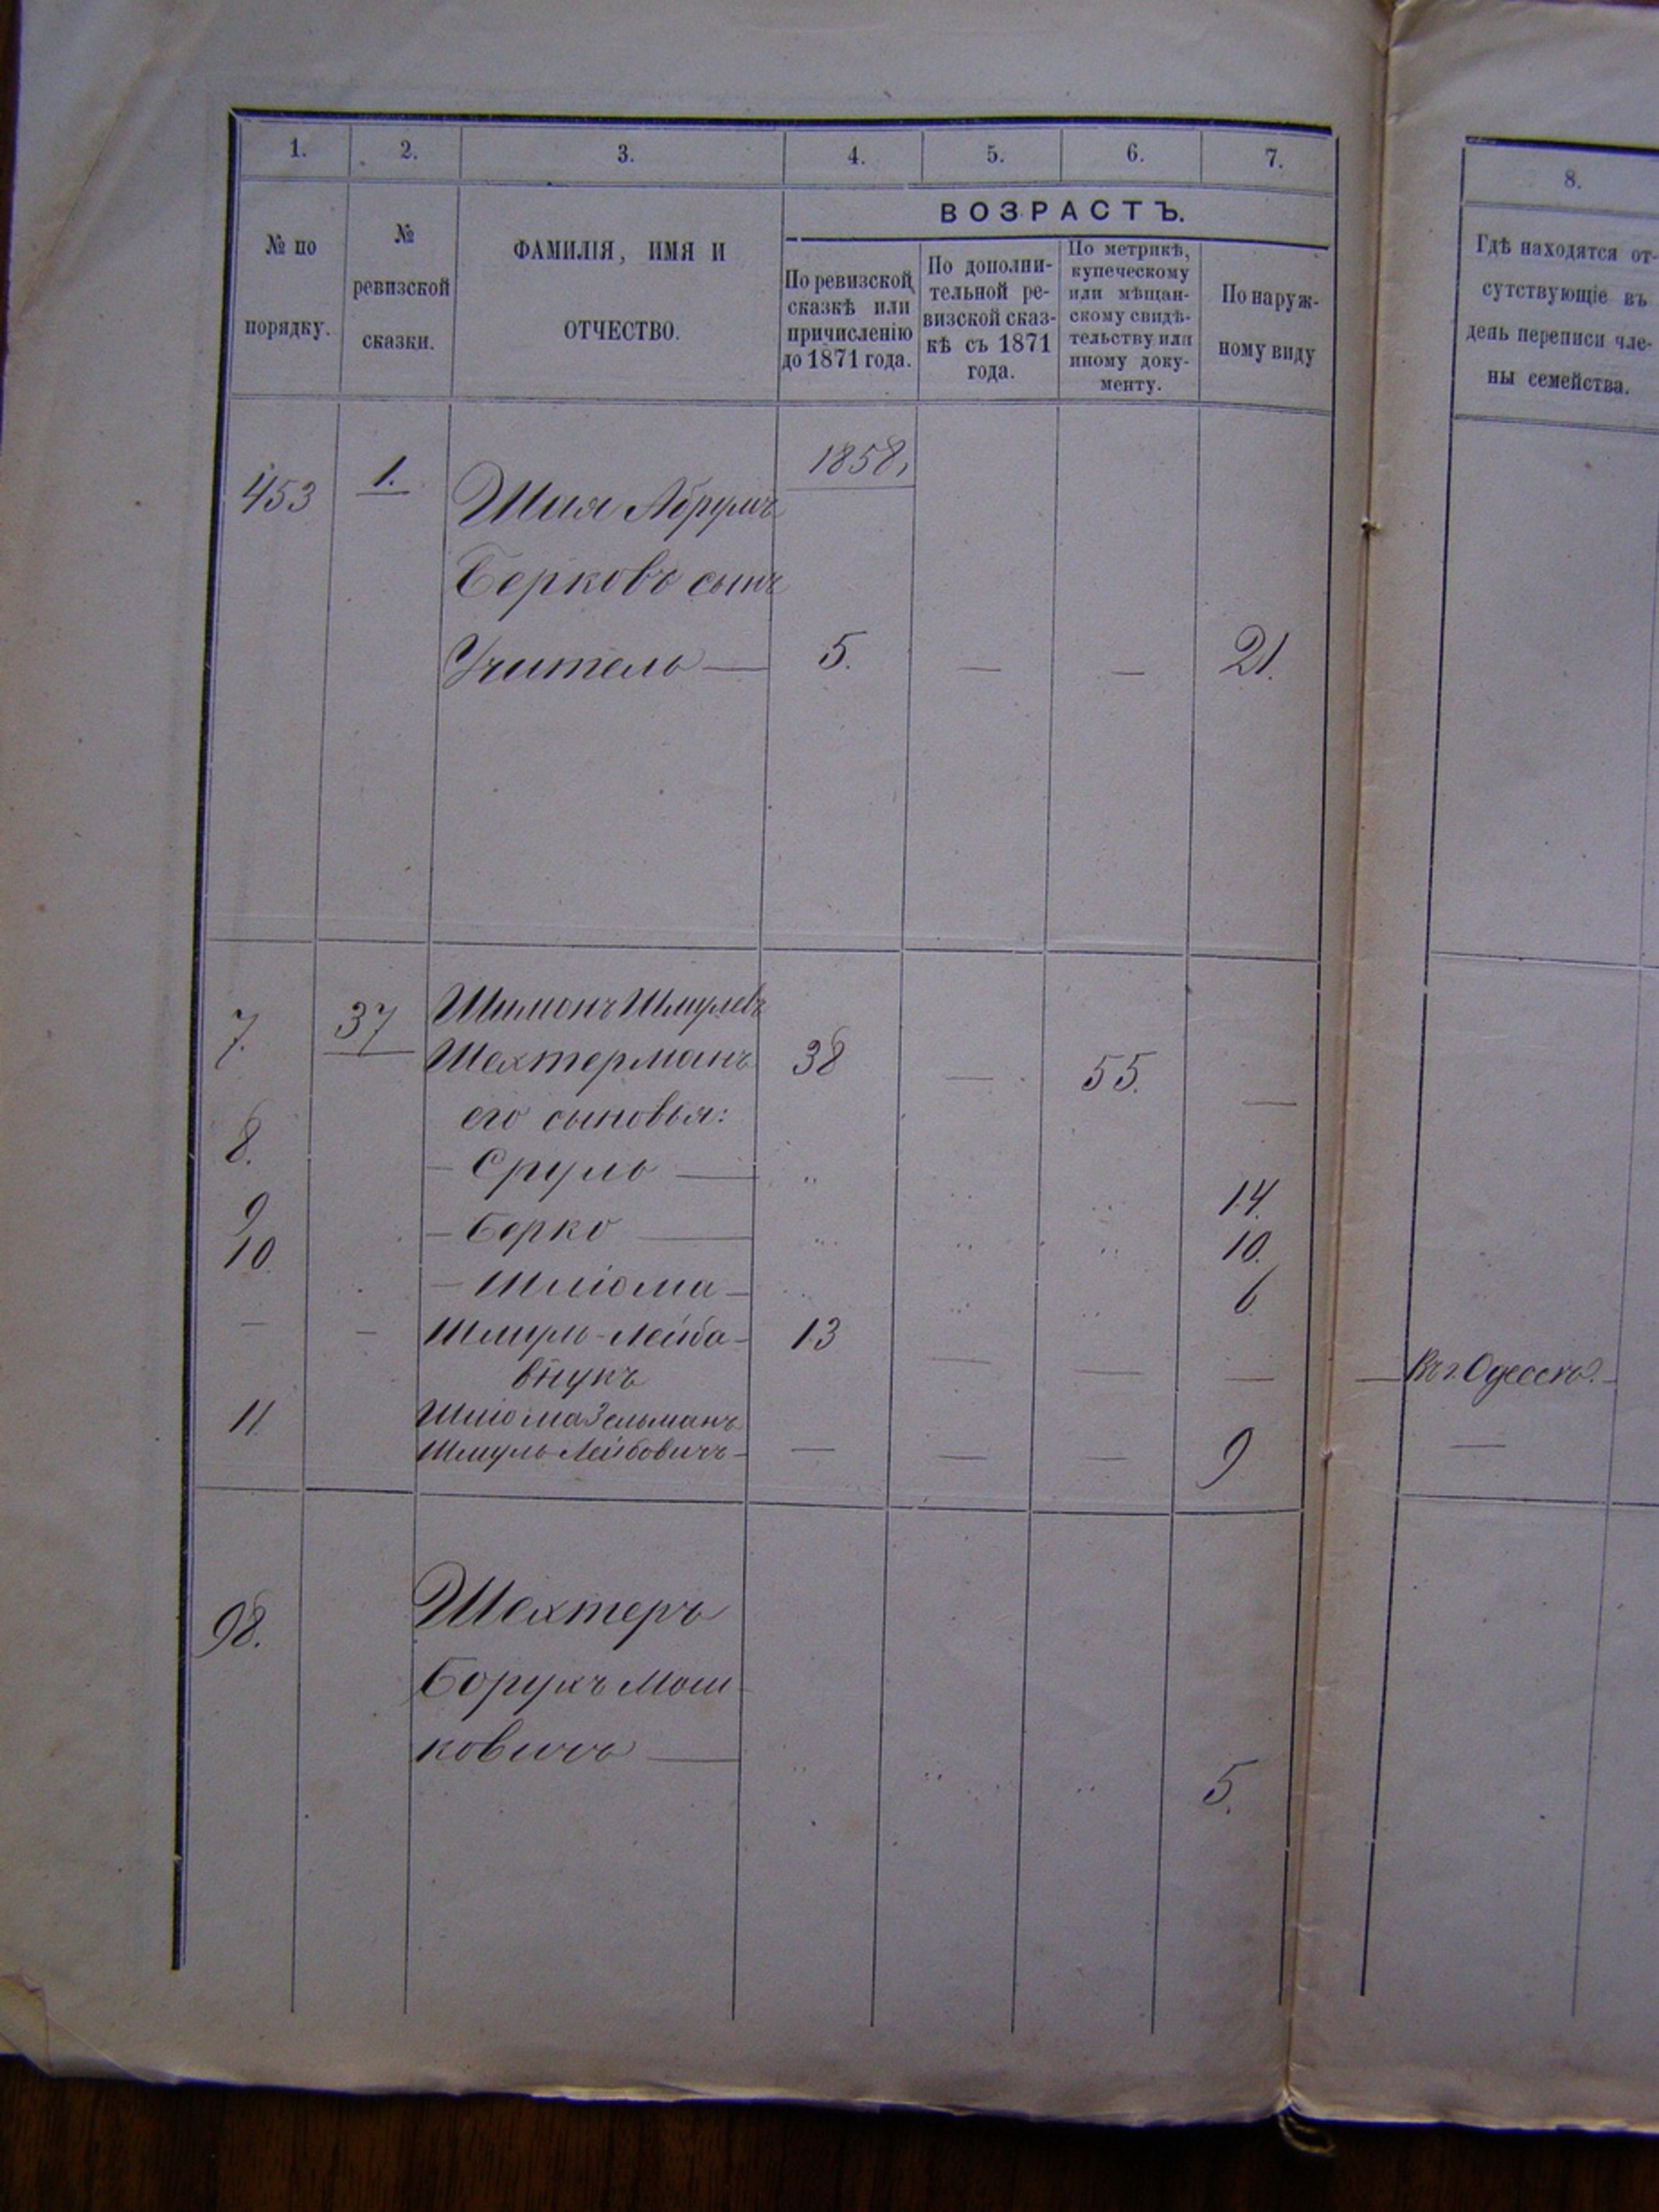 1. 2. 3. 4. 5. 6. 7. 8.
ВОЗРАСТЪ.
№ по
порядку.
№
ревизской
сказки.
ФАМИЛІЯ, ИМЯ И
ОТЧЕСТВО.
По ревизской
сказкѣ или
причисленію
до 1871 года.
По дополни-
тельной ре-
визской сказ-
кѣ съ 1871
года.
По метрикѣ,
купеческому
или мѣщан-
скому свидѣ-
тельству или
иному доку-
менту.
По наруж-
ному виду
Гдѣ находятся от-
сутствующіе въ
день переписи чле-
ны семейства.
1858,
453 1. Шая Абрумъ
Берковъ сынъ
Учитель — 5. — — 21.
7. 37 Шимонъ Шмулевъ
Шехтерманъ 38 — 55. —
его сыновья:
8. — Сруль — " " " 14.
9 — Берко — " " " 10.
10. — Шліома — " " " 6
— — Шмуль-Лейба — 13 — — — — Въ г. Одессѣ. —
внукъ
11. Шліома Зельманъ
Шмуль-Лейбовичъ — — — — 9 —
98. Шехтеръ
Борухъ Мош-
ковичъ — " " " 5.